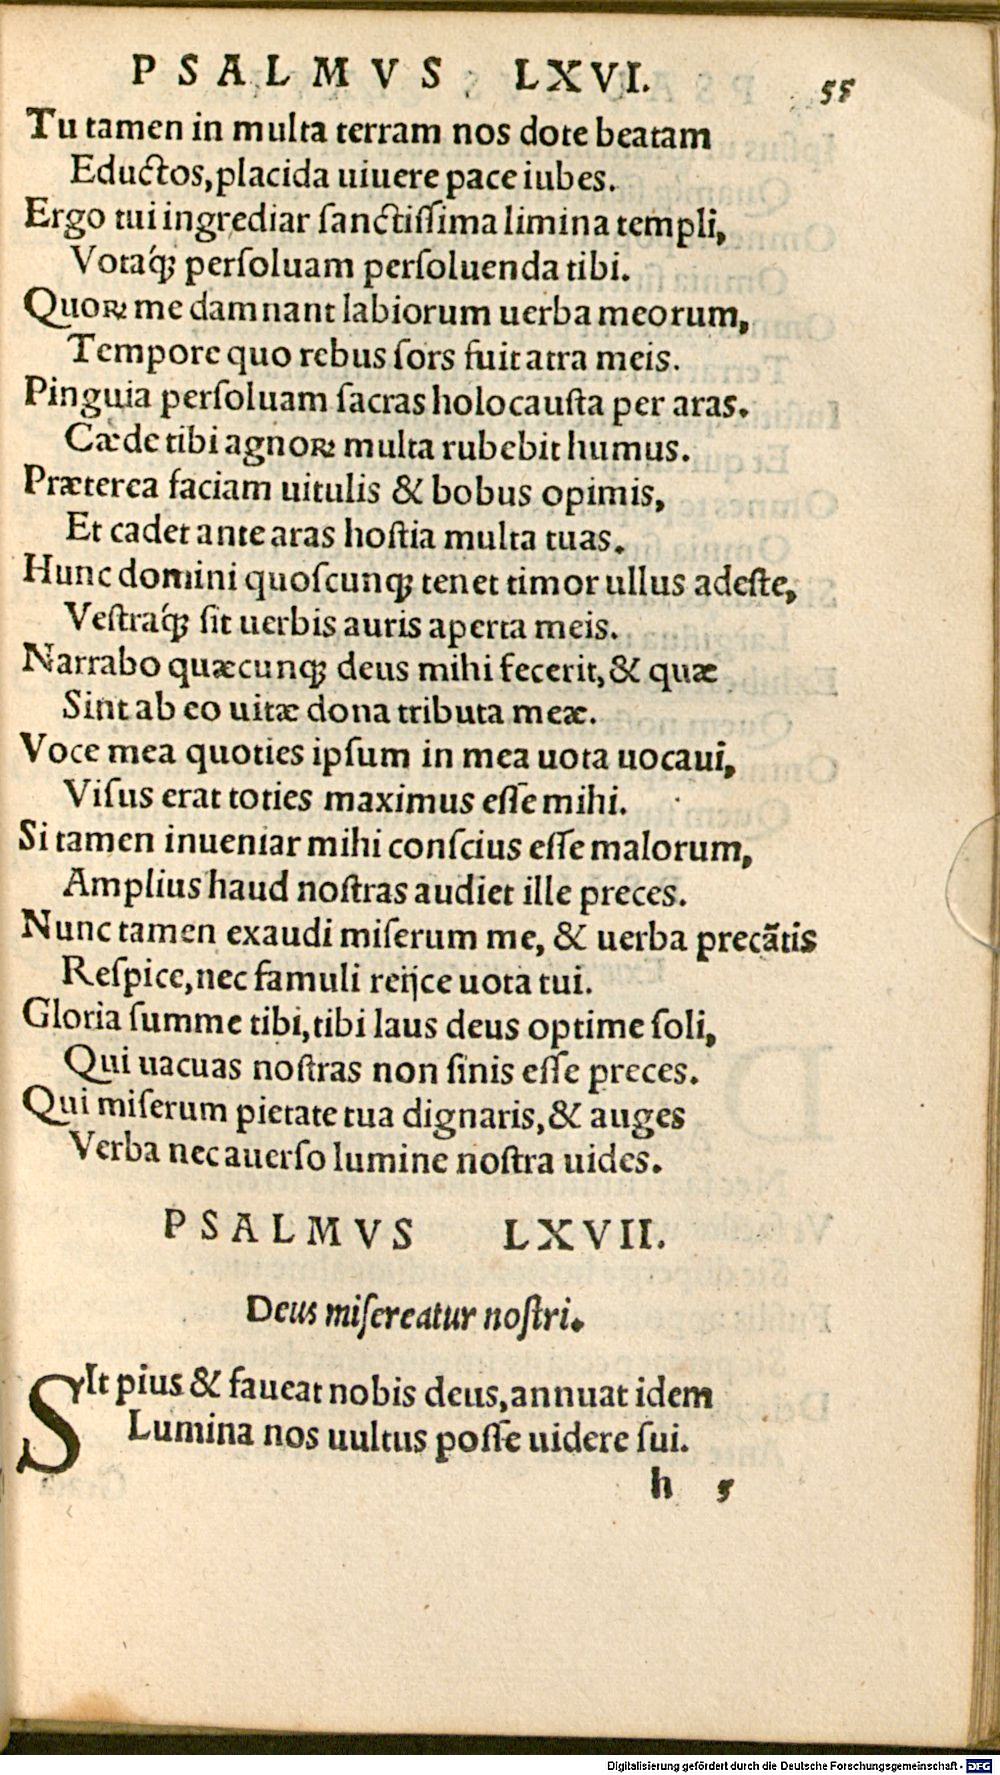 PSALMVS LXVI. 55
Tu tamen in multa terram nos dote beatam
Eductos, placida uiuere pace iubes.
Ergo tui ingrediar ſanctiſſima limina templi,
Votaq́; perſoluam perſoluenda tibi.
Quoꝝ me damnant labiorum uerba meorum,
Tempore quo rebus ſors fuit atra meis.
Pinguia perſoluam ſacras holocauſta per aras.
Cæde tibi agnoꝝ multa rubebit humus.
Præterea faciam uitulis & bobus opimis,
Et cadet ante aras hoſtia multa tuas.
Hunc domini quoſcunq; tenet timor ullus adeſte,
Veſtraq́; ſit uerbis auris aperta meis.
Narrabo quæcunq; deus mihi fecerit, & quæ
Sint ab eo uitæ dona tributa meæ.
Voce mea quoties ipſum in mea uota uocaui,
Viſus erat toties maximus eſſe mihi.
Si tamen inueniar mihi conſcius eſſe malorum,
Amplius haud noſtras audiet ille preces.
Nunc tamen exaudi miſerum me, & uerba precãtis
Reſpice, nec famuli reijce uota tui.
Gloria ſumme tibi, tibi laus deus optime ſoli,
Qui uacuas noſtras non ſinis eſſe preces.
Qui miſerum pietate tua dignaris, & auges
Verba nec auerſo lumine noſtra uides.
PSALMVS LXVII.
Deus miſereatur noſtri.
SIt pius & faueat nobis deus, annuat idem
Lumina nos uultus poſſe uidere ſui.
h 5
Digitalisierung gefördert durch die Deutsche Forschungsgemeinschaft - DFG